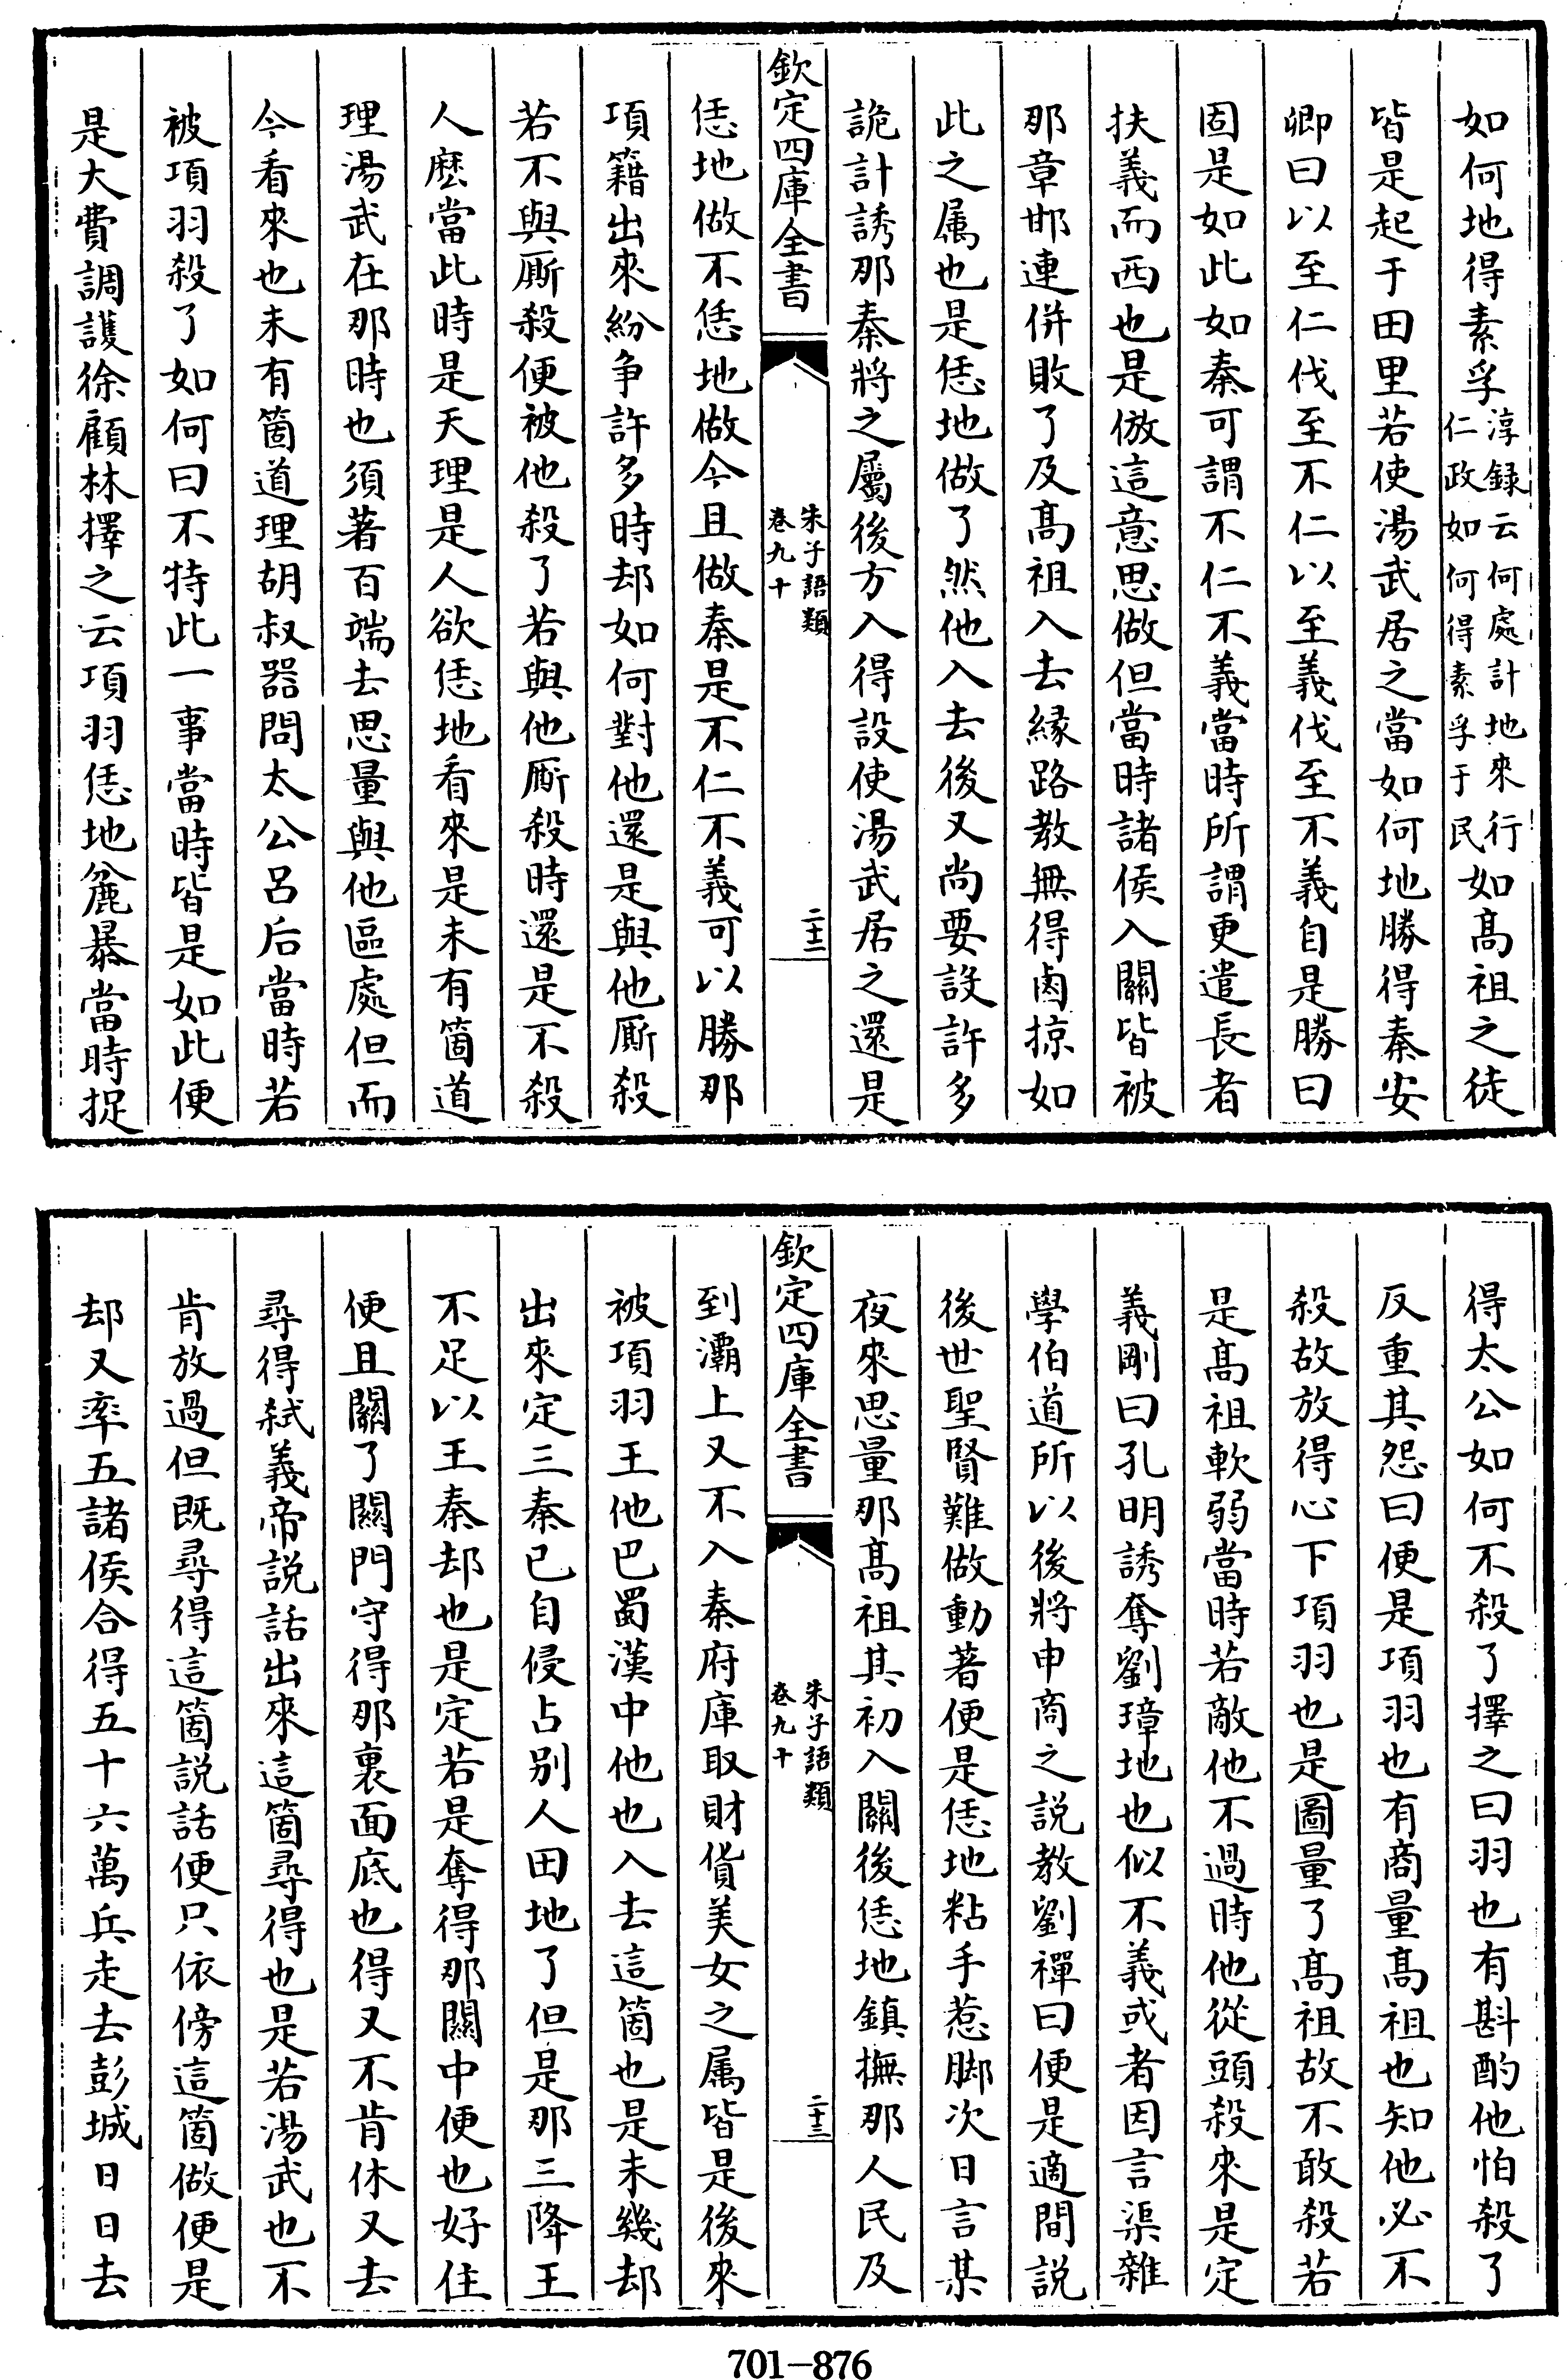 如何地得素孚淳録云何處計地來行仁政如何得素孚于民如髙祖之徒
皆是起于田里若使湯武居之當如何地勝得秦安
卿曰以至仁伐至不仁以至義伐至不義自是勝曰
固是如此如秦可謂不仁不義當時所謂更遣長者
扶義而西也是倣這意思做但當時諸侯入關皆被
那章邯連併敗了及髙祖入去緣路教無得鹵掠如
此之属也是恁地做了然他入去後又尚要設許多
詭計誘那秦將之屬後方入得設使湯武居之還是
欽定四庫全書
朱子語類
卷九十
二十二
恁地做不恁地做今且做秦是不仁不義可以勝那
項籍出來紛争許多時却如何對他還是與他厮殺
若不與厮殺便被他殺了若與他厮殺時還是不殺
人麽當此時是天理是人欲恁地看來是未有箇道
理湯武在那時也須著百端去思量與他區處但而
今看來也未有箇道理胡叔器問太公吕后當時若
被項羽殺了如何曰不特此一事當時皆是如此便
是大費調護徐顧林擇之云項羽恁地麄暴當時捉
得太公如何不殺了擇之曰羽也有斟酌他怕殺了
反重其怨曰便是項羽也有商量髙祖也知他必不
殺故放得心下項羽也是圖量了髙祖故不敢殺若
是髙祖軟弱當時若敵他不過時他從頭殺來是定
義剛曰孔明誘奪劉璋地也似不義或者因言渠雜
學伯道所以後將申商之説教劉禪曰便是適間説
後世聖賢難做動著便是恁地粘手惹脚次日言某
夜來思量那髙祖其初入關後恁地鎮撫那人民及
欽定四庫全書
朱子語類
卷九十
二十三
到灞上又不入秦府庫取財貨美女之属皆是後來
被項羽王他巴蜀漢中他也入去這箇也是未幾却
出來定三秦已自侵占别人田地了但是那三降王
不足以王秦却也是定若是奪得那關中便也好住
便且關了關門守得那裏面底也得又不肯休又去
尋得弑義帝説話出來這箇尋得也是若湯武也不
肯放過但既尋得這箇説話便只依傍這箇做便是
却又率五諸侯合得五十六萬兵走去彭城日日去
701—876